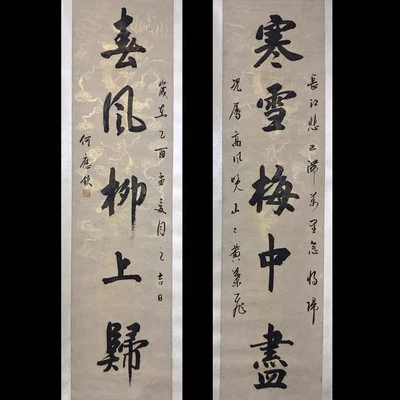 長江悲已滯萬里念將歸
寒雪梅中盡
況屬高風晚山々黃葉飛
歲在乙酉孟夏月之吉日
春風柳上歸
何應欽